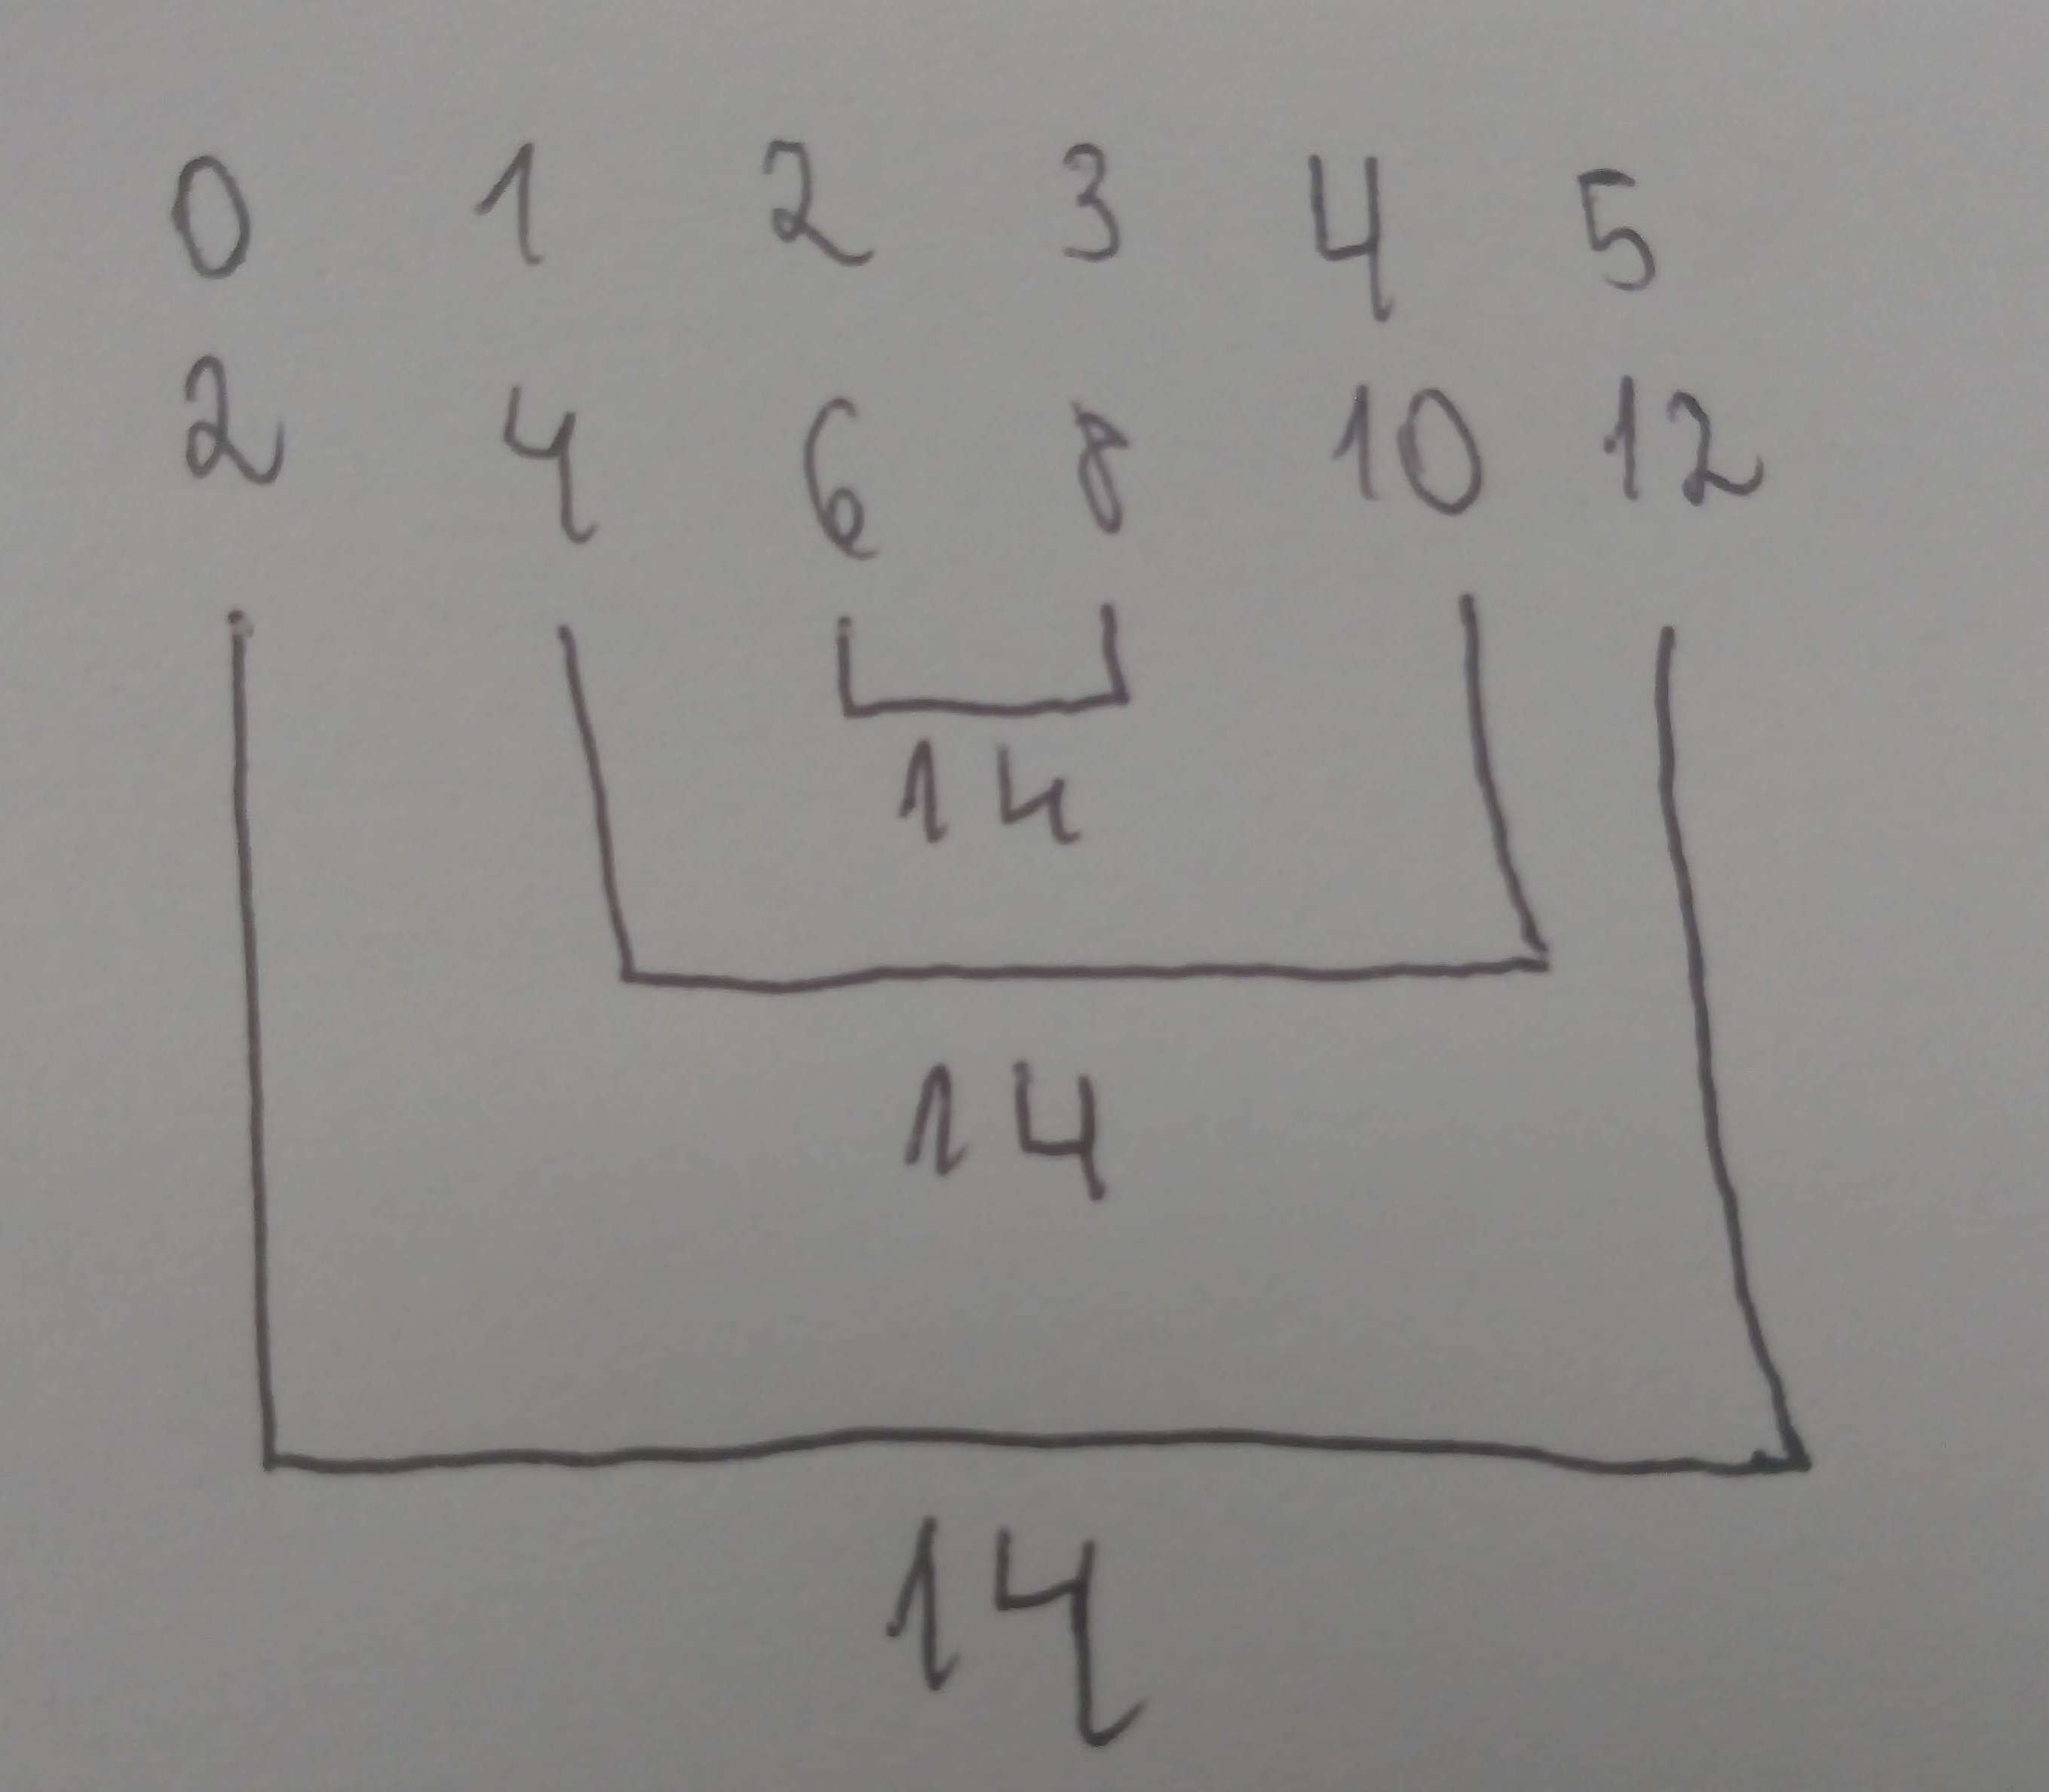 0 1 2 3 4 5
2 4 6 8 10 12
14
14
14